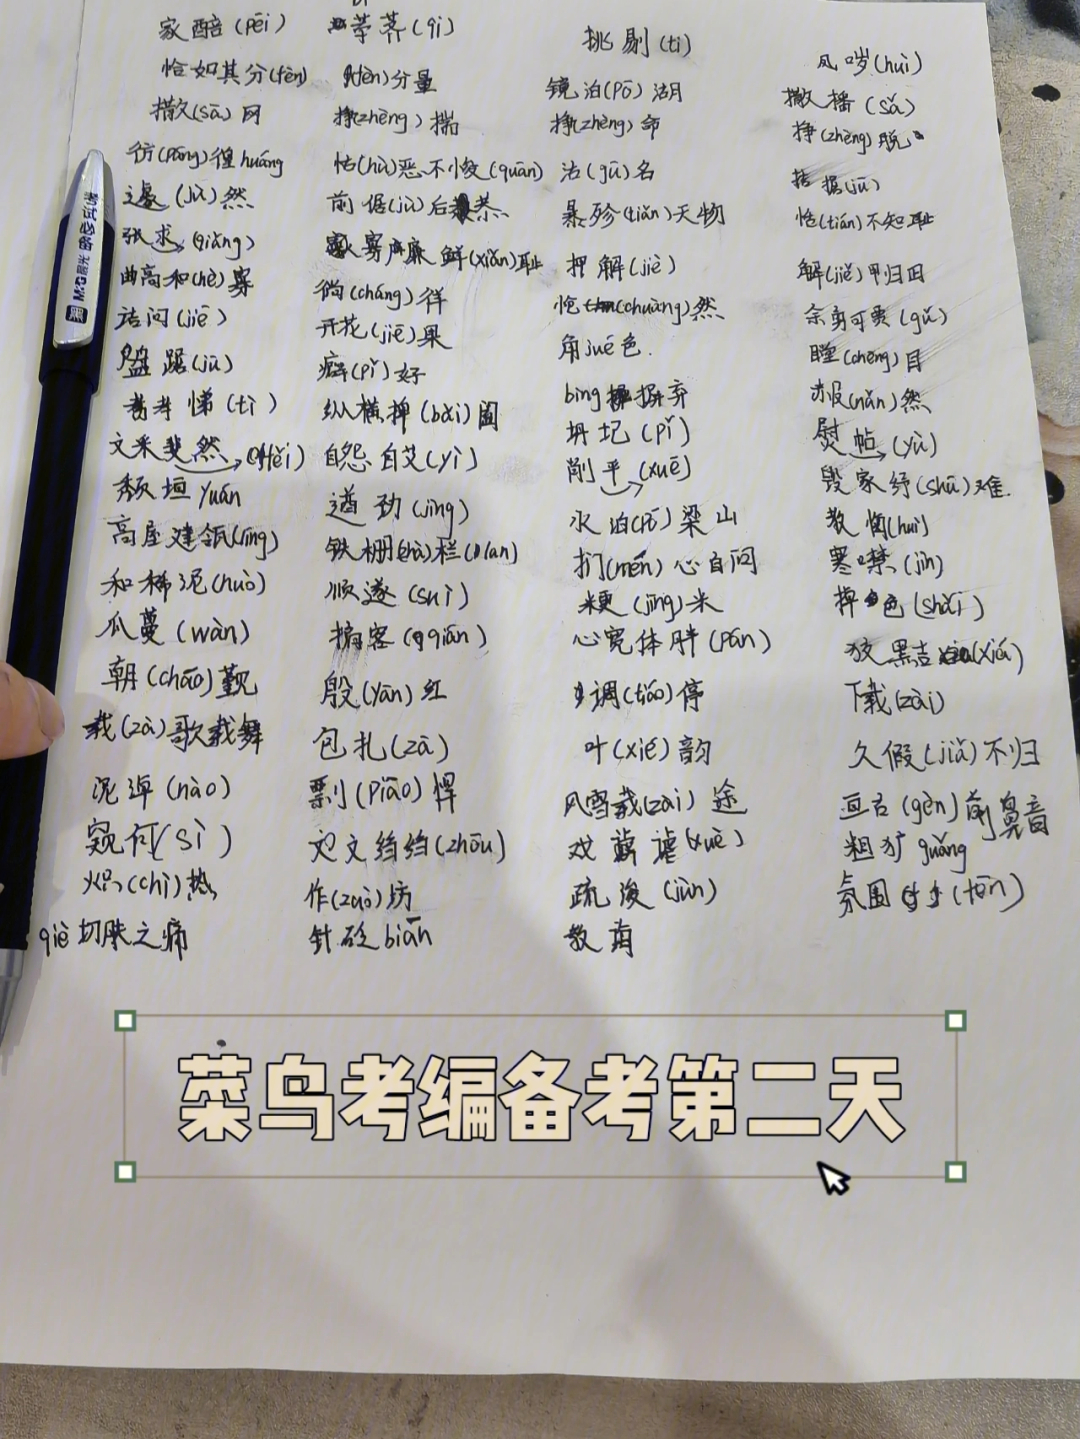 家醅(pēi) 荸荠(qí) 挑剔(tī) 风哕(huì)
恰如其分(fèn) (fèn)分量 镜泊(pō)湖 撒播(sǎ)
撒(sā)网 挣(zhèng)揣 挣(zhèng)命 挣(zhèng)脱
彷(páng)徨huáng 怙(hù)恶不悛(quān) 沽(gū)名 拮据(jū)
遽(jù)然 前倨(jù)后恭 暴殄(tiǎn)天物 恬(tián)不知耻
强求(qiǎng) 寡廉鲜(xiǎn)耻 押解(jiè) 解(jiě)甲归田
曲高和(hè)寡 徜(cháng)徉 怆(chuàng)然 余勇可贾(gǔ)
诘问(jié) 开花(jiē)果 角jué色 瞠(chēng)目
盘踞(jù) 癖(pǐ)好 bìng摒弃 赧(nǎn)然
孝悌(tì) 纵横捭(bǎi)阖 圮(pǐ) 熨帖(yù)
文采斐然(fěi) 自怨自艾(yì) 削平(xuē) 毁家纾(shū)难
颓垣yuán 遒劲(jìng) 水泊(pō)梁山 教诲(huì)
高屋建瓴(líng) 铁栅(zhà)栏(lan) 扪(mén)心自问 寒噤(jìn)
和稀泥(huò) 顺遂(suì) 粳(jīng)米 掉色(shǎi)
瓜蔓(wàn) 掮客(qián) 心宽体胖(pán) 狡黠(xiá)
朝(cháo)觐 殷(yān)红 调(tiáo)停 下载(zài)
载(zài)歌载舞 包扎(zā) 叶(xié)韵 久假(jiǎ)不归
泥淖(nào) 剽(piāo)悍 风雪载(zài)途 亘古(gèn)前鼻音
窥伺(sì) 文绉绉(zhōu) 戏谑(xuè) 粗犷guǎng
炽(chì)热 作(zuō)坊 疏浚(jùn) 氛围(fēn)
qiè切肤之痛 针砭biān 教
M&G晨光 考试必备
黑
菜鸟考编备考第二天